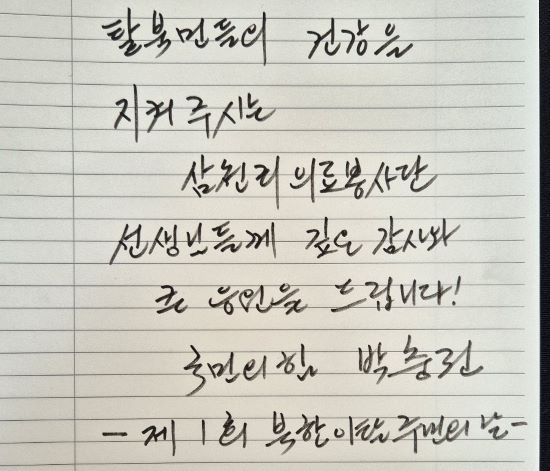 탈북민들의 건강을
지켜 주시는
삼천리 의료봉사단
선생님들께 깊은 감사와
큰 응원을 드립니다!
국민의힘 박충권
- 제 1회 북한이탈주민의 날 -